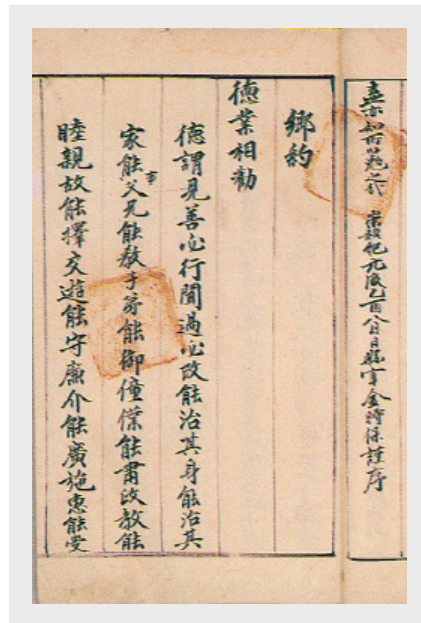 崇禎紀元後乙酉八月日縣宰金時保謹序
鄉約
德業相勸
德謂見善必行聞過必改能治其身能治其
家能事父兄能敎子弟能御僮僕能肅政敎能
睦親故能擇交遊能守廉介能廣施惠能受